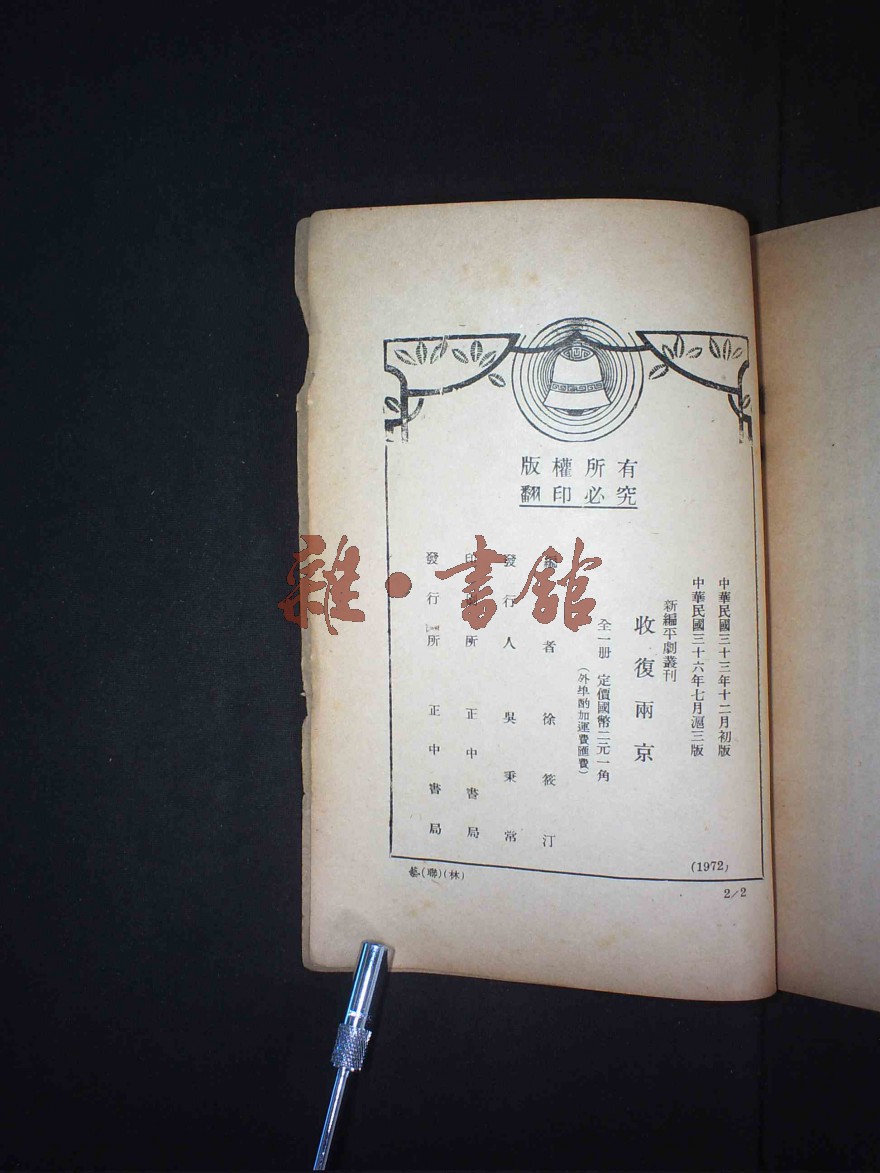 版權所有
翻印必究
中華民國三十三年十二月初版
中華民國三十六年七月滬三版
新編平劇叢刊
收復兩京
全一册 定價國幣二元一角
（外埠酌加運費匯費）
者 徐筱汀
發行人 吳秉常
印 所 正中書局
發行所 正中書局
(1972)
藝(聯)(林)
2/2
雜·書館